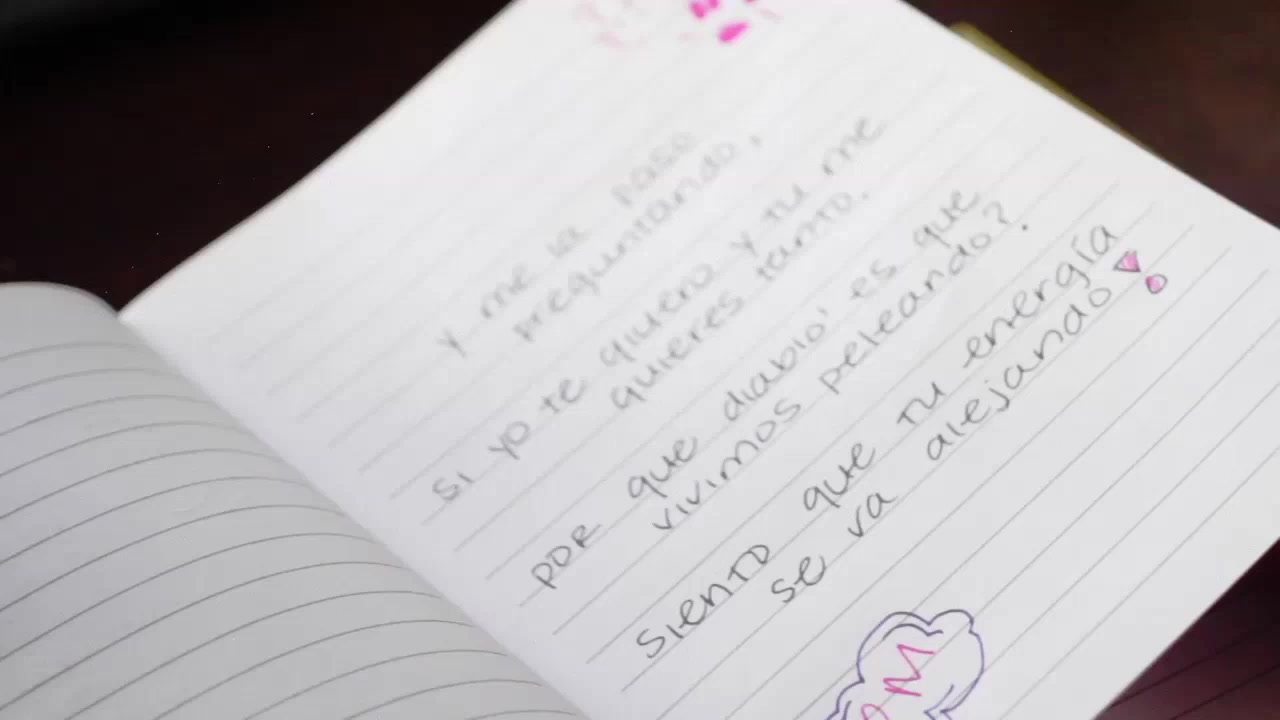 y me la paso
preguntando,
si yo te quiero y tu me
quieres tanto.
POR que diablo' es que
vivimos peleando?
siento que tu energía
se va alejando